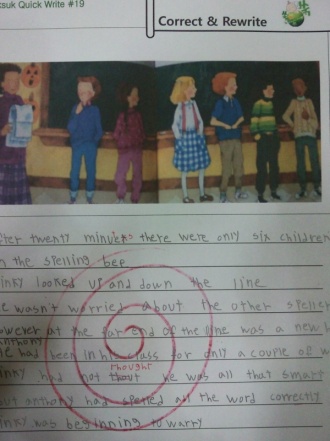 ksuk Quick Write #19
Correct & Rewrite
fter twenty minuets there were only six children
n the spelling bee
inky looked up and down the line
e wasn't worried about the other speller
owever at the far end of the line was a new
anthony
He had been in his class for only a couple of w
thought
inky had not thout he was all that smart
but anthony had spelled all the word correctly
inky was beginning to warry